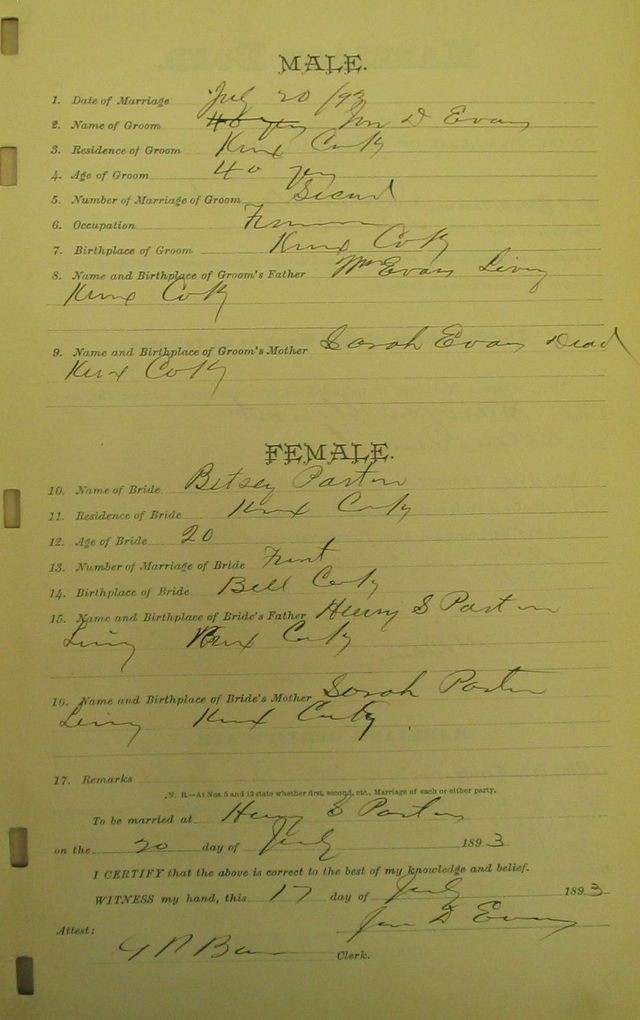 MALE.
1. Date of Marriage July 20/93
2. Name of Groom D Evans
3. Residence of Groom Knox Co Ky
4. Age of Groom 40 yrs
5. Number of Marriage of Groom Second
6. Occupation Farmer
7. Birthplace of Groom Knox Co Ky
8. Name and Birthplace of Groom's Father Wm Evans Living
Knox Co Ky
9. Name and Birthplace of Groom's Mother Sarah Evans Dead
Knox Co Ky
FEMALE.
10. Name of Bride Betsey Parton
11. Residence of Bride Knox Co Ky
12. Age of Bride 20
13. Number of Marriage of Bride First
14. Birthplace of Bride Bell Co Ky
15. Name and Birthplace of Bride's Father Henry S Parton
Living Knox Co Ky
16. Name and Birthplace of Bride's Mother Sarah Parton
Living Knox Co Ky.
17. Remarks
N. B.—At Nos. 5 and 13 state whether first, second, etc., Marriage of each or either party.
To be married at Henry S Parton
on the 20 day of July 1893
I CERTIFY that the above is correct to the best of my knowledge and belief.
WITNESS my hand, this 17 day of July 1893
D Evans
Attest:
Clerk.